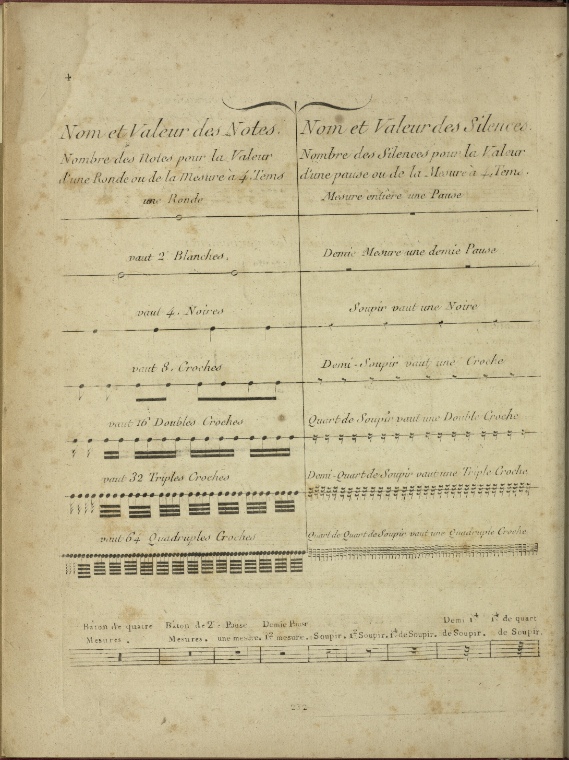 4
Nom et Valeur des Notes.
Nombre des Notes pour la Valeur
d'une Ronde ou de la Mesure à 4 Tems
une Ronde
vaut 2 Blanches.
vaut 4. Noires
vaut 8. Croches
vaut 16 Doubles Croches
vaut 32 Triples Croches
vaut 64 Quadruples Croches
Nom et Valeur des Silences.
Nombre des Silences pour la Valeur
d'une pause ou de la Mesure à 4 Tems.
Mesure entière une Pause
Demie Mesure une demie Pause
Soupir vaut une Noire
Demi-Soupir vaut une Croche
Quart de Soupir vaut une Double Croche
Demi-Quart de Soupir vaut une Triple Croche
Quart de Quart de Soupir vaut une Quadruple Croche
Bâton de quatre
Mesures.
Bâton de 2
Mesures.
Pause
une mesure.
Demie Pause
mesure.
Soupir.
Soupir.
de Soupir.
Demi
de Soupir.
de quart
de Soupir.
212